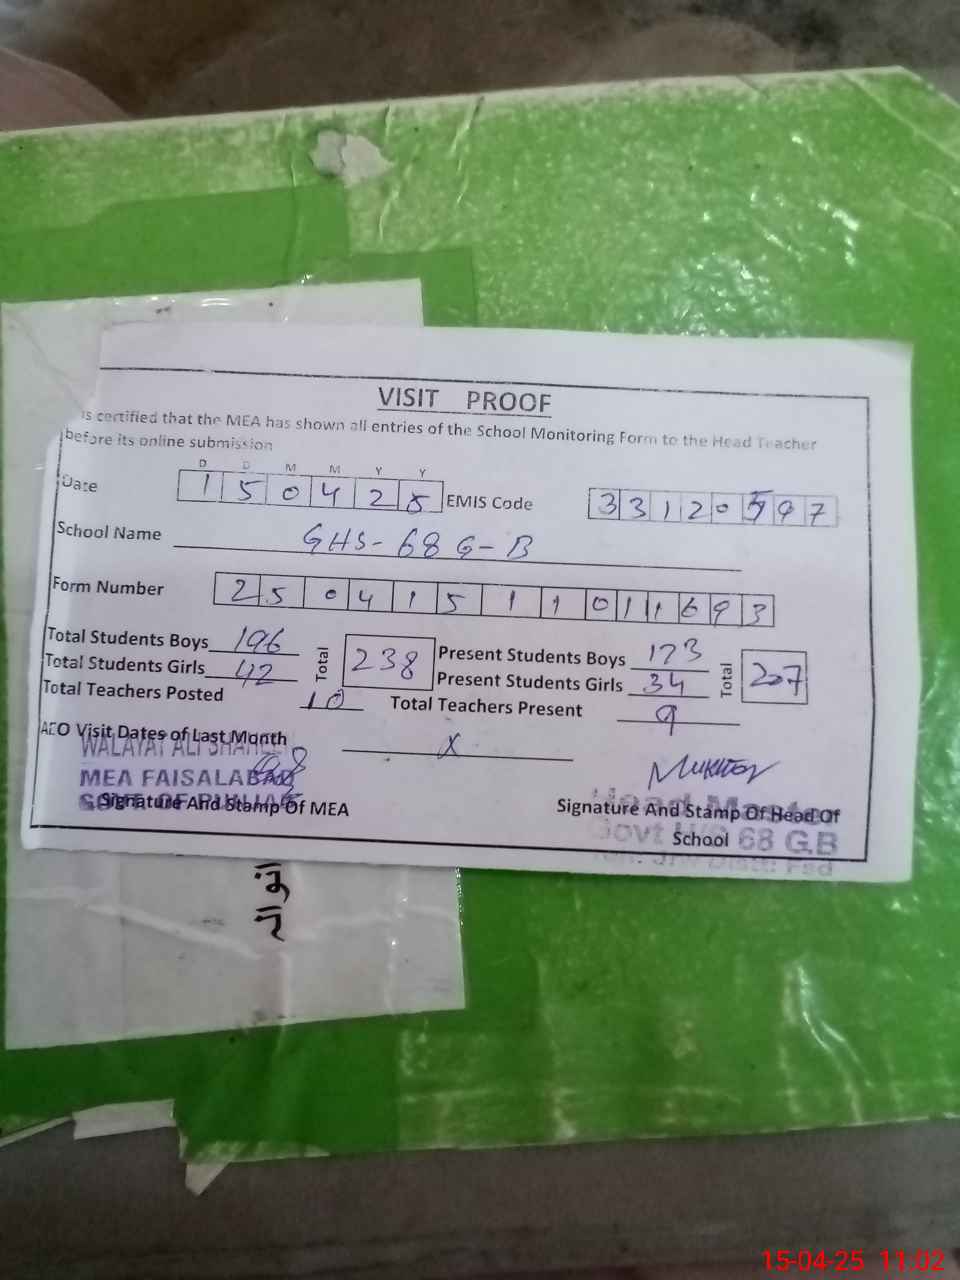 VISIT PROOF
is certified that the MEA has shown all entries of the School Monitoring Form to the Head Teacher
before its online submission
D D M M Y Y
Date 1 5 0 4 2 5 EMIS Code 3 3 1 2 0 5 9 7
School Name GHS-68 G-B
Form Number 2 5 0 4 1 5 1 1 0 1 1 6 9 3
Total Students Boys 196 Total 238 Present Students Boys 173 Total 207
Total Students Girls 42 Present Students Girls 34
Total Teachers Posted 10 Total Teachers Present 9
AEO Visit Dates of Last Month x
WALAYAT ALI SHAHEEN
MEA FAISALABAD
GOVT. OF PUNJAB
Signature And Stamp Of MEA
Mukhtar
Head Master
Signature And Stamp Of Head Of
School
Govt H/S 68 G.B
Distt: Fsd
15-04-25 11:02